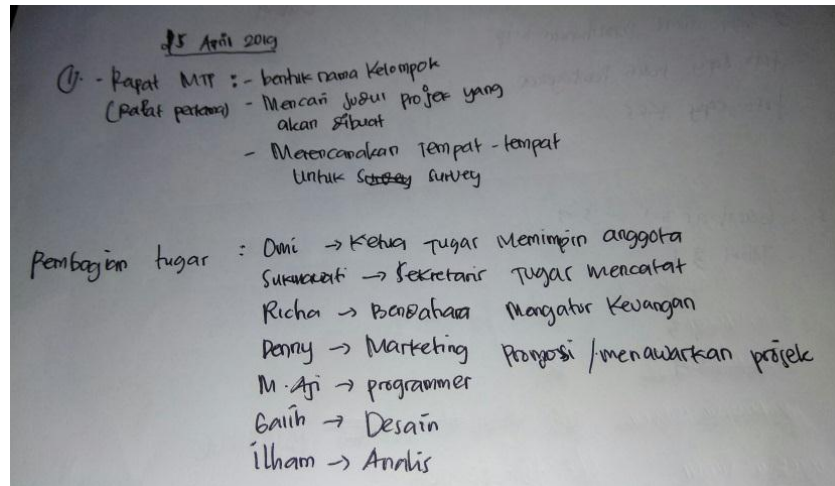 25 April 2019
1). - Rapat MTP : - bentuk nama Kelompok
(Rapat pertama) - Mencari Judul projek yang
akan dibuat
- Merencanakan Tempat - tempat
Untuk Survey
Pembagian tugas : Omi → Ketua Tugas Memimpin anggota
Sukmawati → Sekretaris Tugas mencatat
Richa → Bendahara Mengatur Keuangan
Denny → Marketing /menawarkan projek
M. Aji → programmer
Galih → Desain
ilham → Analis